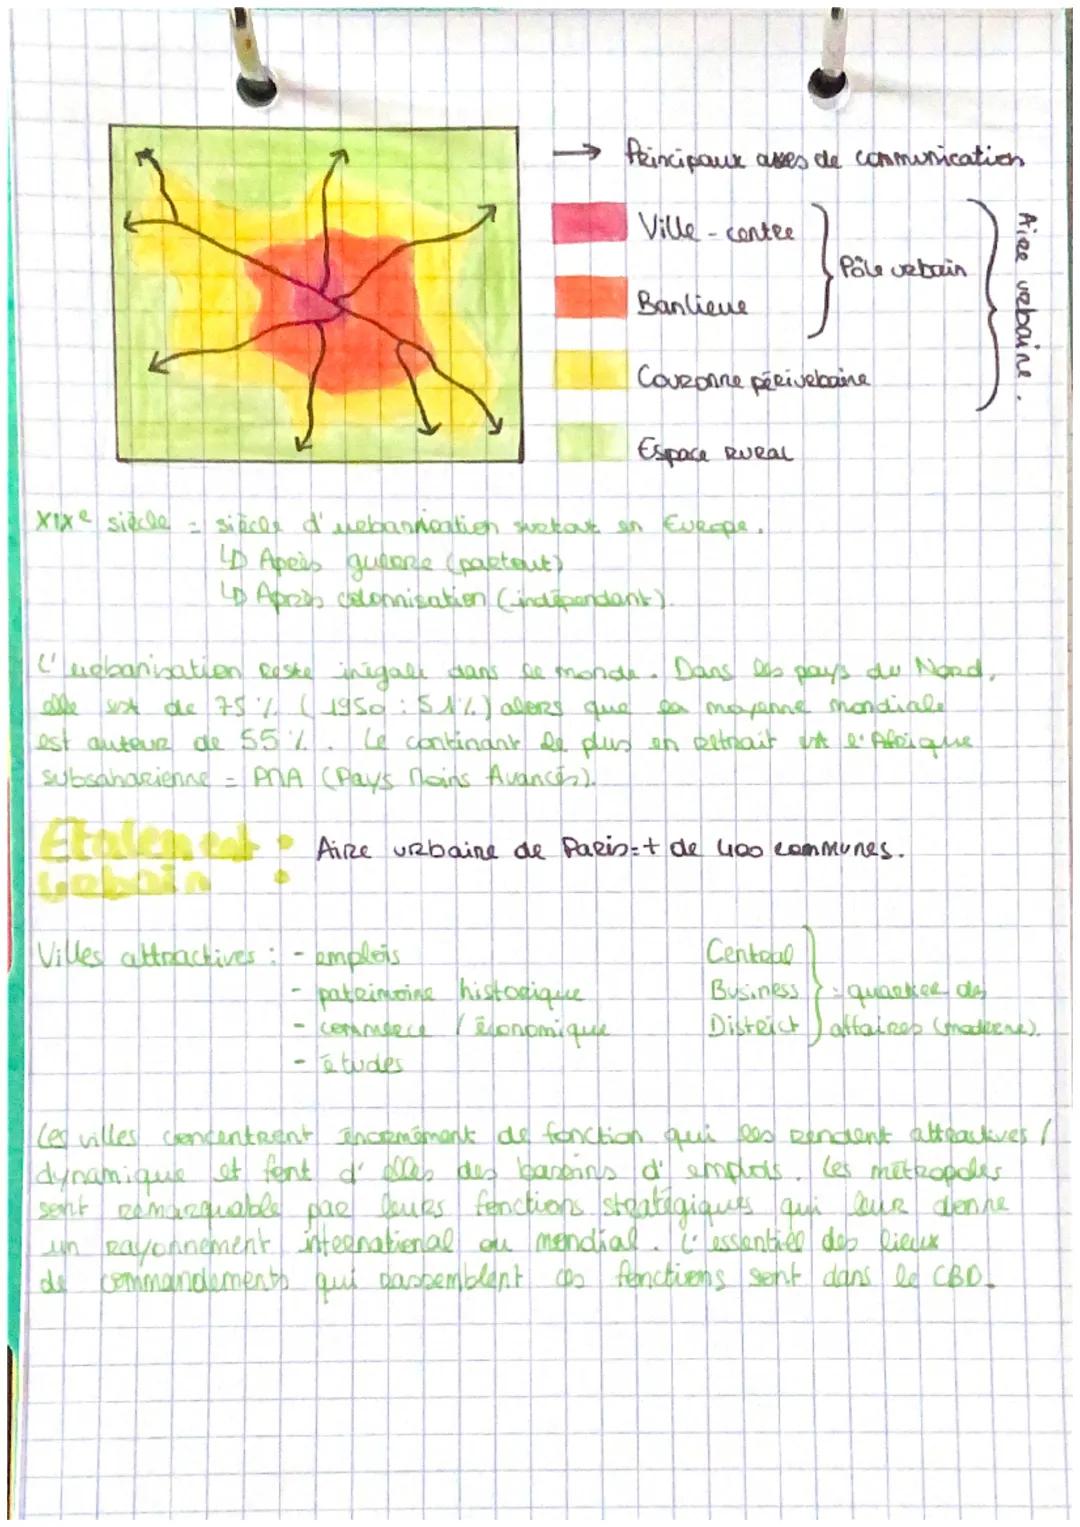 → Principaux axes de communication
Ville - centre
Pôle urbain
Banlieue
Couronne périurbaine
Aire urbaine.
Espace rural
XIXe siècle = siècle d'urbanisation surtout en Europe.
↳ Après guerre (partout)
↳ Après colonnisation (indépendant).
L'urbanisation reste inégale dans le monde. Dans les pays du Nord,
elle est de 75 % (1950 : 51%) alors que la moyenne mondiale
est autour de 55 %. Le continant le plus en retrait est l'Afrique
subsaharienne = PMA (Pays Moins Avancés).
Etalement urbain : Aire urbaine de Paris = + de 400 communes.
Villes attractives : - emplois
- patrimoine historique
- commerce / économique
- études
Central
Business
District
= quartier des
affaires (moderne).
Les villes concentrent énormément de fonction qui les rendent attractives /
dynamique et font d'elles des bassins d'emplois. Les métropoles
sont remarquable par leurs fonctions stratégiques qui leur donne
un rayonnement international ou mondial. L'essentiel des lieux
de commandements qui rassemblent ces fonctions sont dans le CBD.